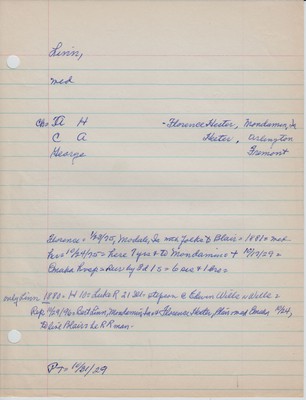 Linn,
med
Chs D H - Florence Hester, Mondamin, Ia
C A Hester, Arlington
George Fremont
Florence = 1/29/75, Modale, Ia = folks to Blair = 1881 = med
hrs 10/24/75 = here 7 yrs & to Mondamin = + 10/17/29 =
Omaha hosp = Surv by Hd 1 S = 6 srs + 1 bro =
only Linn 1880 = H 10 = Luke R 21 Ill = stepson of Edwin Wells = Wells =
Rep 10/29/96 = Bert Linn, Mondamin, Ia & Florence Hester, Blair med Omaha 10/24,
to live Blair = he R R man.
P T = 10/21/29